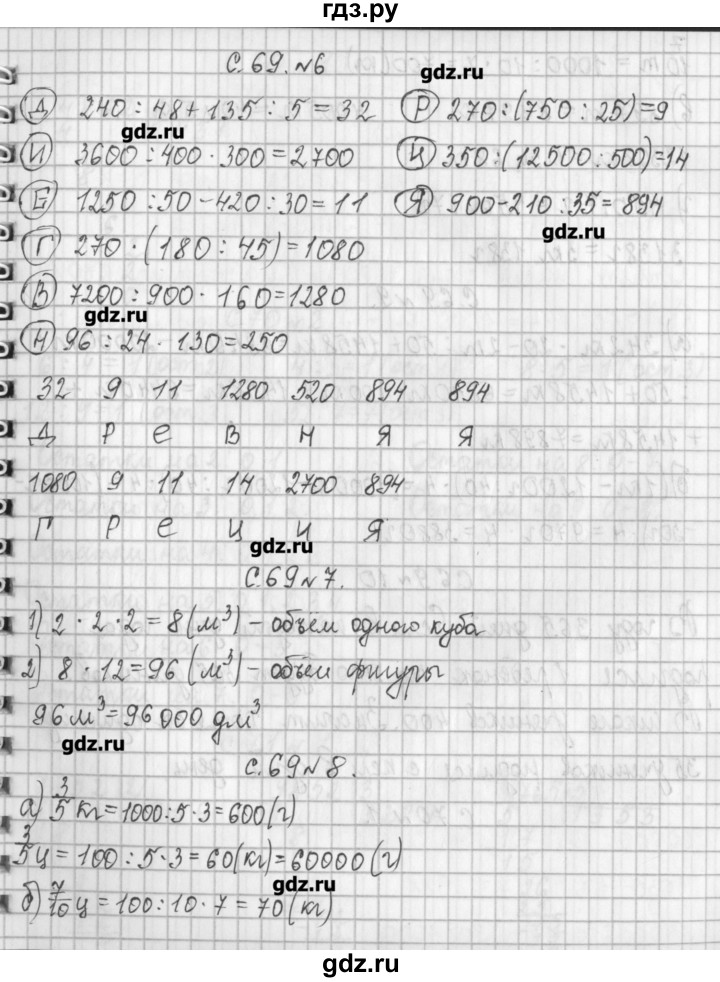 гдз.ру
С. 69. №6
gdz.ru
Д 240 : 48 + 135 : 5 = 32 Р 270 : (750 : 25) = 9
gdz.ru
И 3600 : 400 · 300 = 2700 Ц 350 : (12500 : 500) = 14
Е 1250 : 50 - 420 : 30 = 11 Я 900 - 210 : 35 = 894
gdz.ru
Г 270 · (180 : 45) = 1080
В 7200 : 900 · 160 = 1280
gdz.ru
Н 96 : 24 · 130 = 250
32 9 11 1280 520 894 894
Д Р Е В Н Я Я
1080 9 11 14 2700 894
Г Р Е Ц И Я
gdz.ru
С. 69 №7.
1) 2 · 2 · 2 = 8 (м³) - объём одного куба
2) 8 · 12 = 96 (м³) - объем фигуры
96 м³ = 96 000 дм³
gdz.ru
С. 69 №8.
а) 3/5 кг = 1000 : 5 · 3 = 600 (г)
3/5 ц = 100 : 5 · 3 = 60 (кг) = 60000 (г)
gdz.ru
б) 7/10 ц = 100 : 10 · 7 = 70 (кг)
gdz.ru